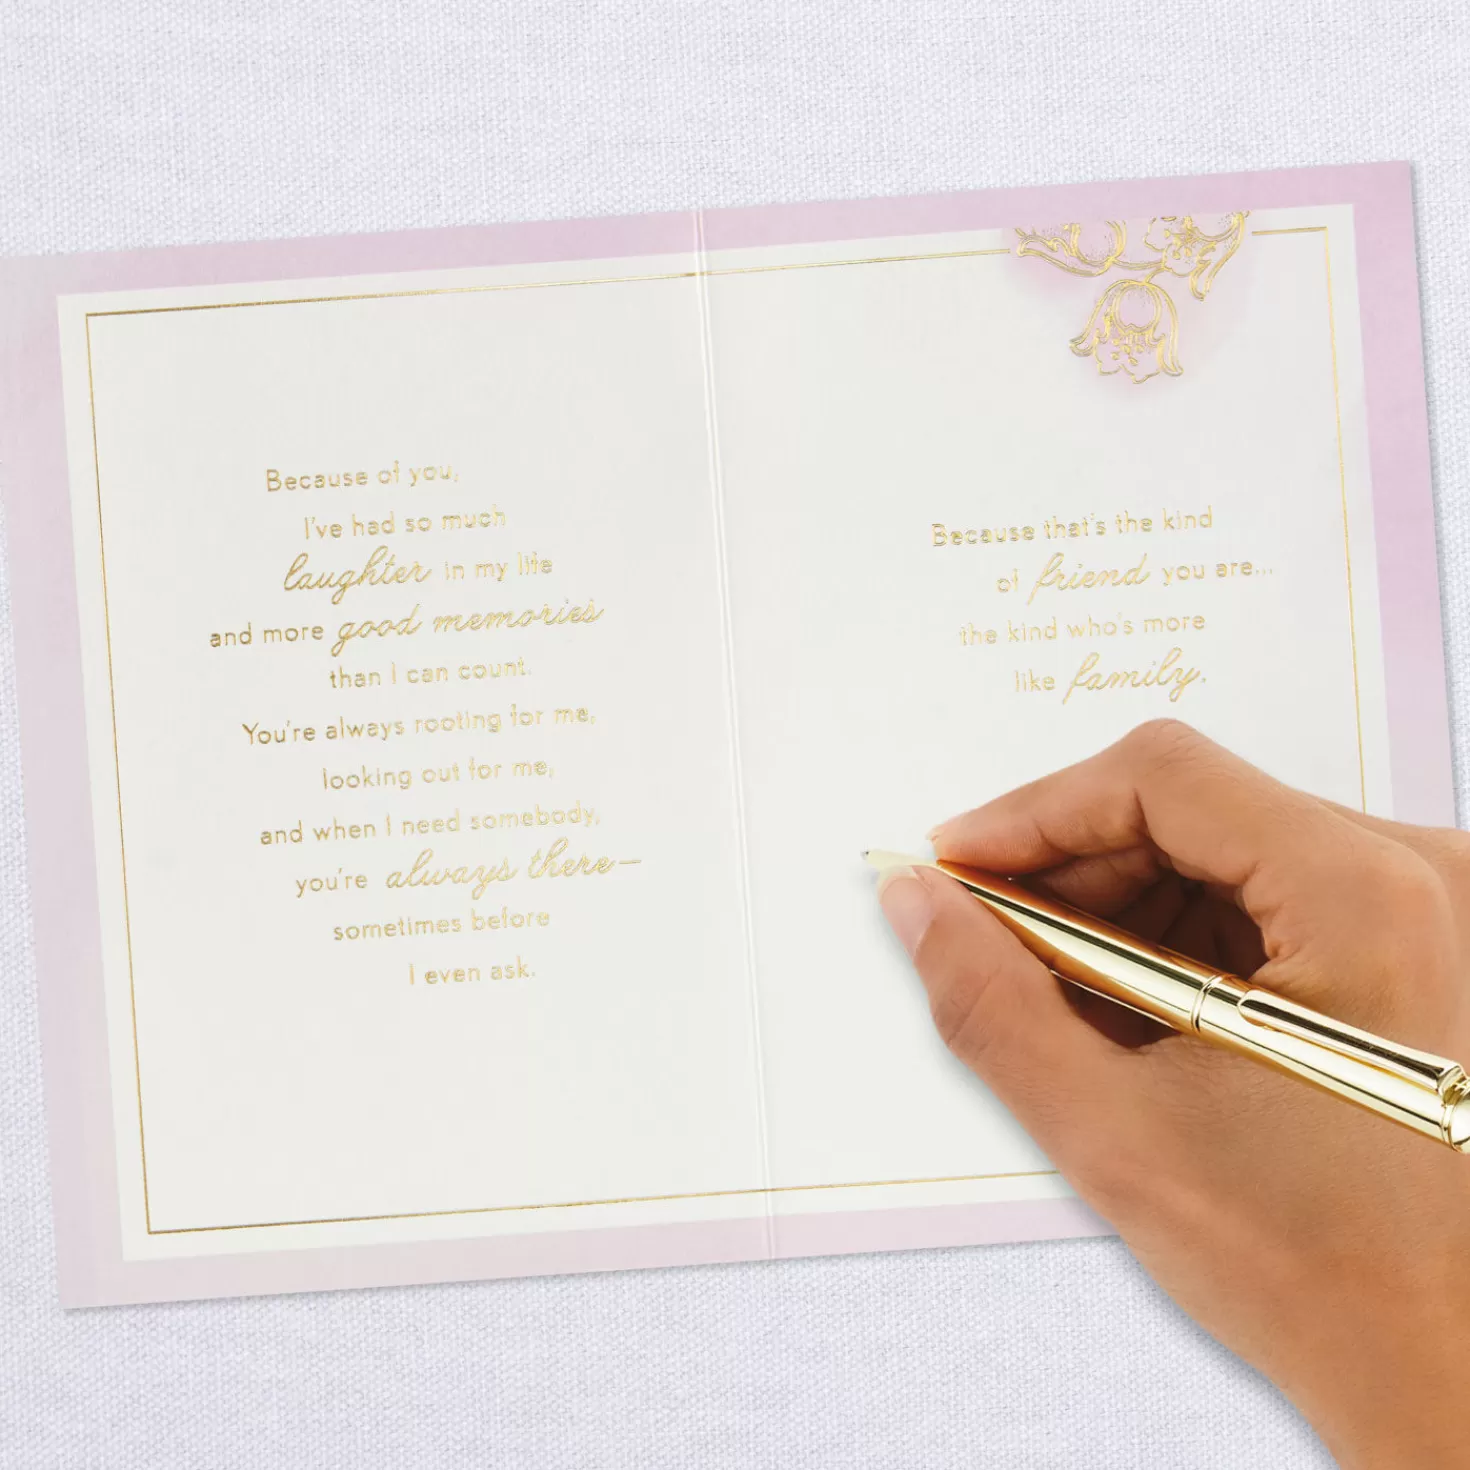 Because of you,
I've had so much
laughter in my life
and more good memories
than I can count.
You're always rooting for me,
looking out for me,
and when I need somebody,
you're always there—
sometimes before
I even ask.
Because that's the kind
of friend you are...
the kind who's more
like family.